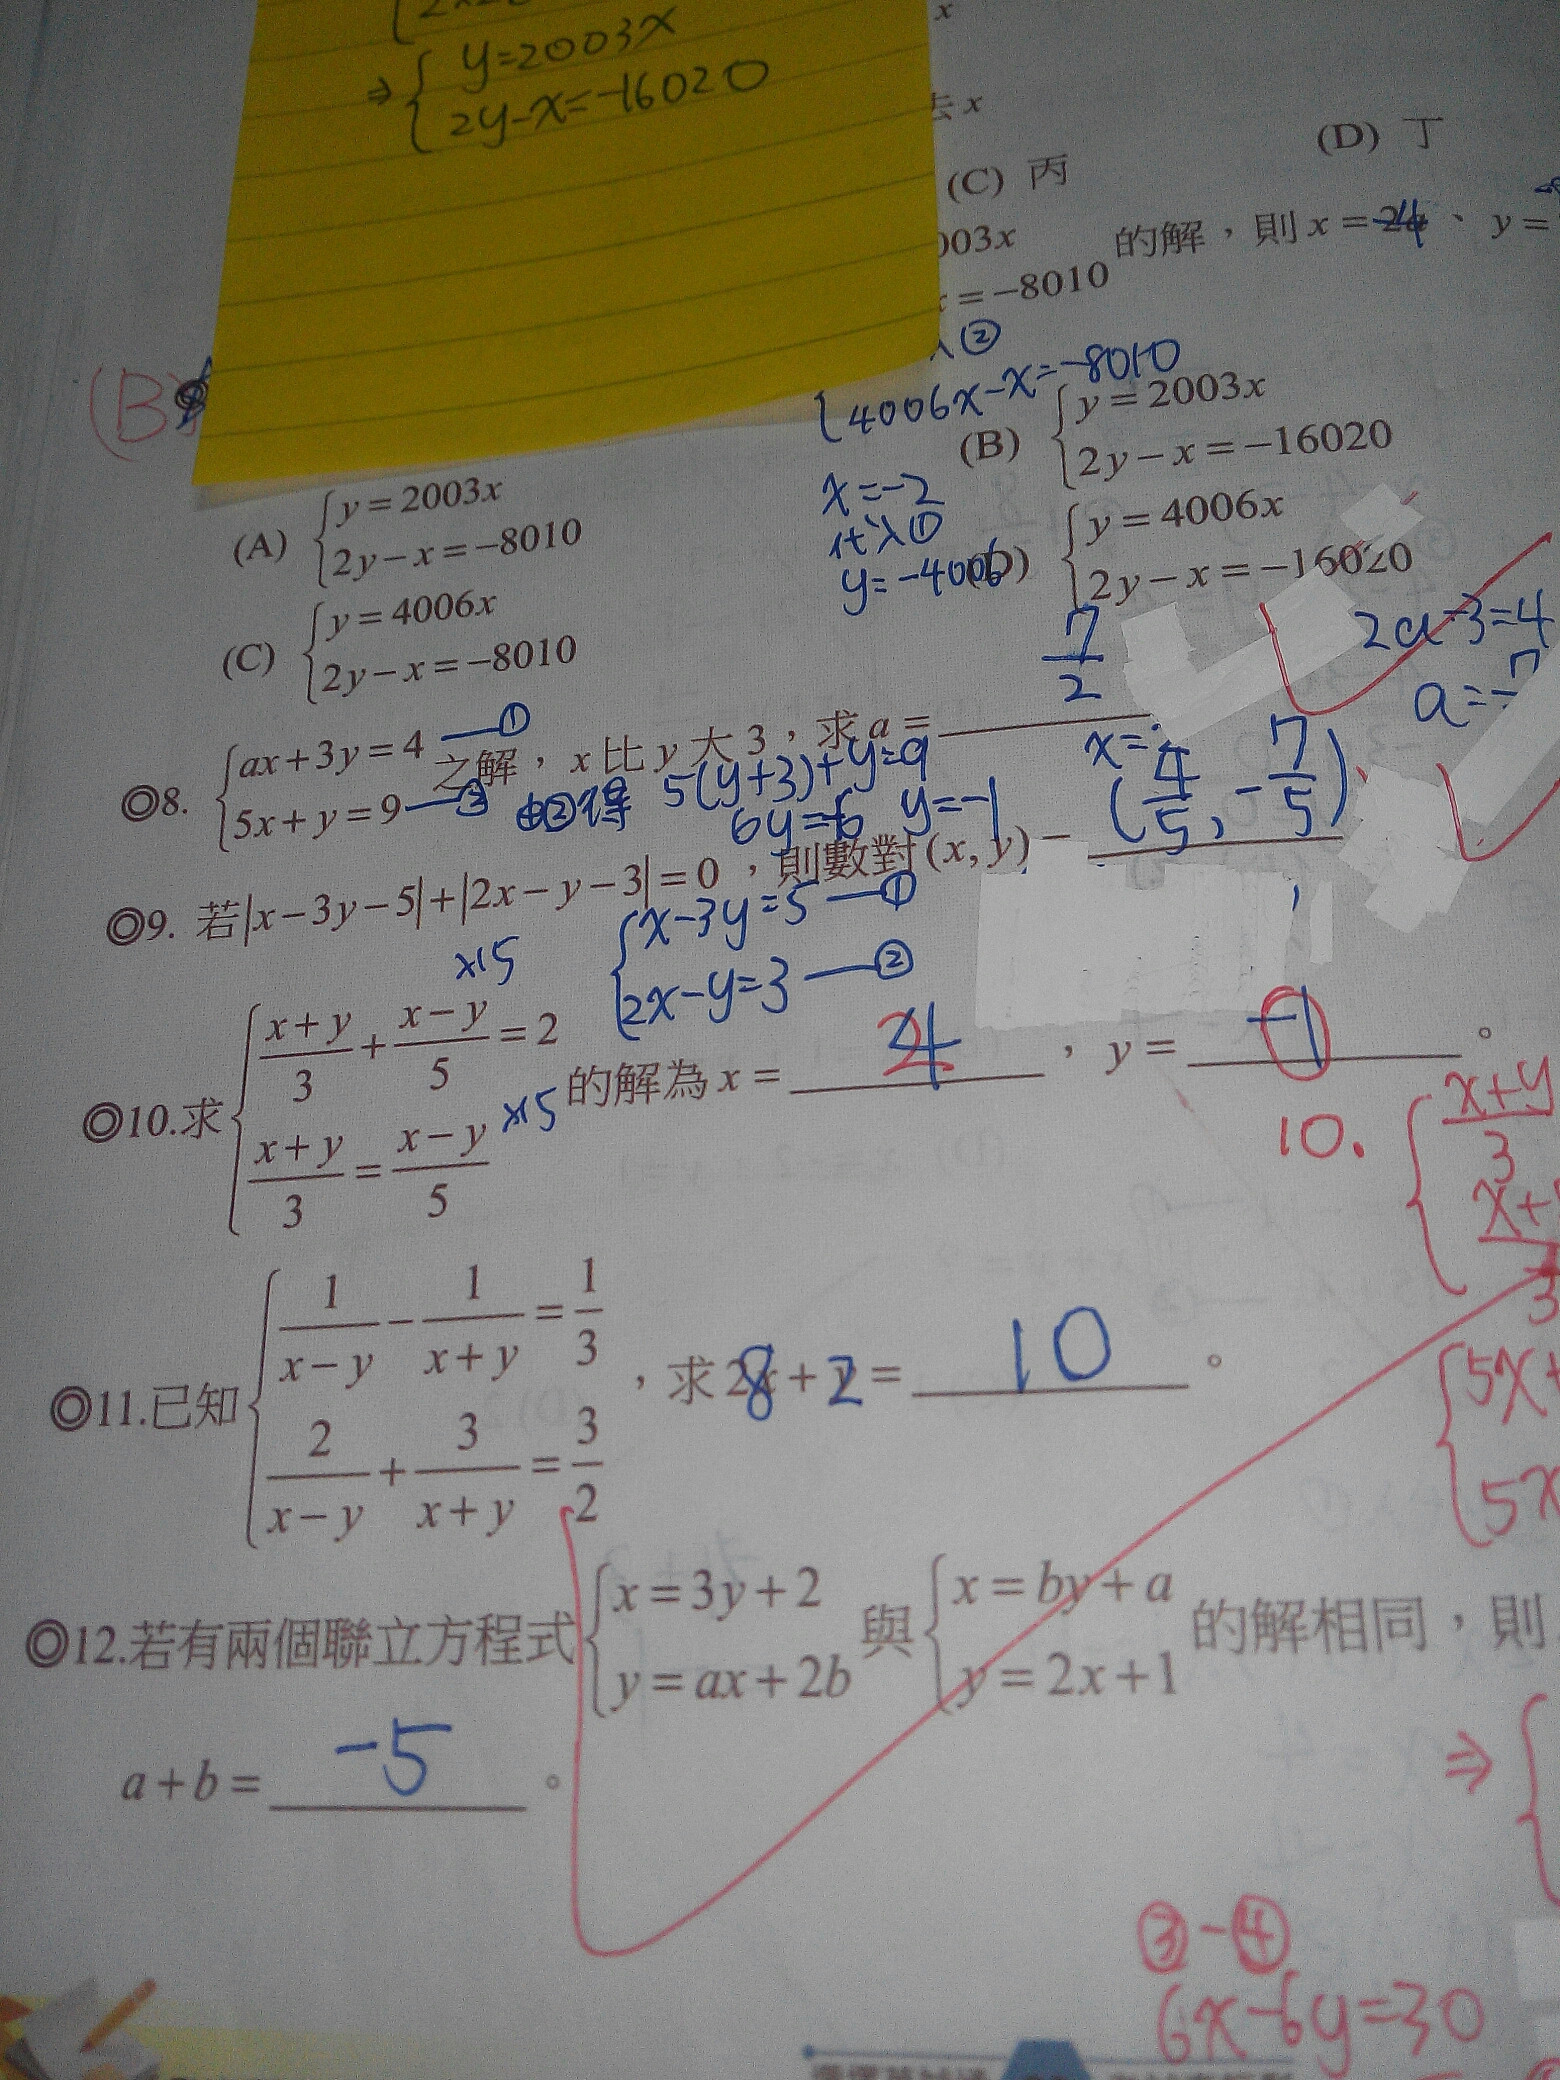 ⇒ { y=2003x
2y-x=-16020
x
去 x
(C) 丙
(D) 丁
003x
的解，則 x = 、 y =
= -8010
②
4006x-x=-8010
(B)
(A) { y = 2003x
2y - x = -8010
x=-2
代入①
y=-4006
(B) { y = 2003x
2y - x = -16020
(C) { y = 4006x
2y - x = -8010
(D) { y = 4006x
2y - x = -16020
2a-3=4
◎8. { ax + 3y = 4 —①
5x + y = 9 —②
之解，x 比 y 大 3，求 a = 7/2
由②得 5(y+3)+y=9
6y=-6 y=-1
◎9. 若 |x - 3y - 5| + |2x - y - 3| = 0，則數對 (x, y) = (4/5, -7/5)
{ x-3y=5 —①
2x-y=3 —②
◎10. 求 { (x+y)/3 + (x-y)/5 = 2 ×15
(x+y)/3 = (x-y)/5 ×15
的解為 x = 4，y = -1。
10. { x+y
3
5x+
5x
◎11. 已知 { 1/(x-y) - 1/(x+y) = 1/3
2/(x-y) + 3/(x+y) = 3/2
，求 2x + y = 10。
8 2
◎12. 若有兩個聯立方程式 { x = 3y + 2
y = ax + 2b
與 { x = by + a
y = 2x + 1
的解相同，則
a + b = -5。
⇒ {
③-④
6x-6y=30